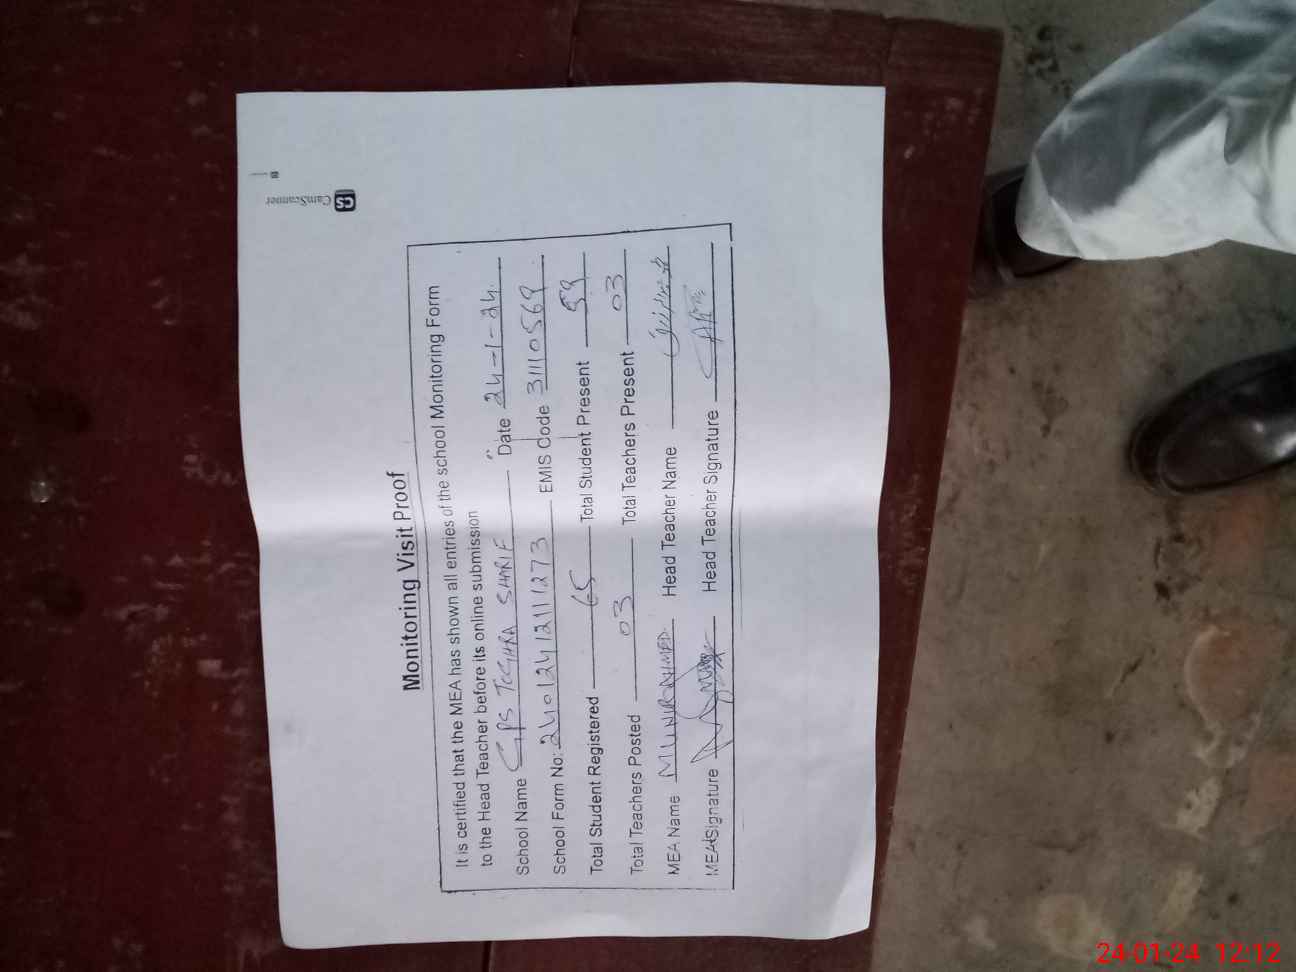 Monitoring Visit Proof
It is certified that the MEA has shown all entries of the school Monitoring Form
to the Head Teacher before its online submission
School Name GPS TOGHRA SHARIF Date 24-1-24.
School Form No: 24012412111273 EMIS Code 31110569
Total Student Registered 65 Total Student Present 59
Total Teachers Posted 03 Total Teachers Present 03
MEA Name MUNIR AHMED Head Teacher Name
MEA Signature Head Teacher Signature
CS CamScanner
24-01-24 12:12